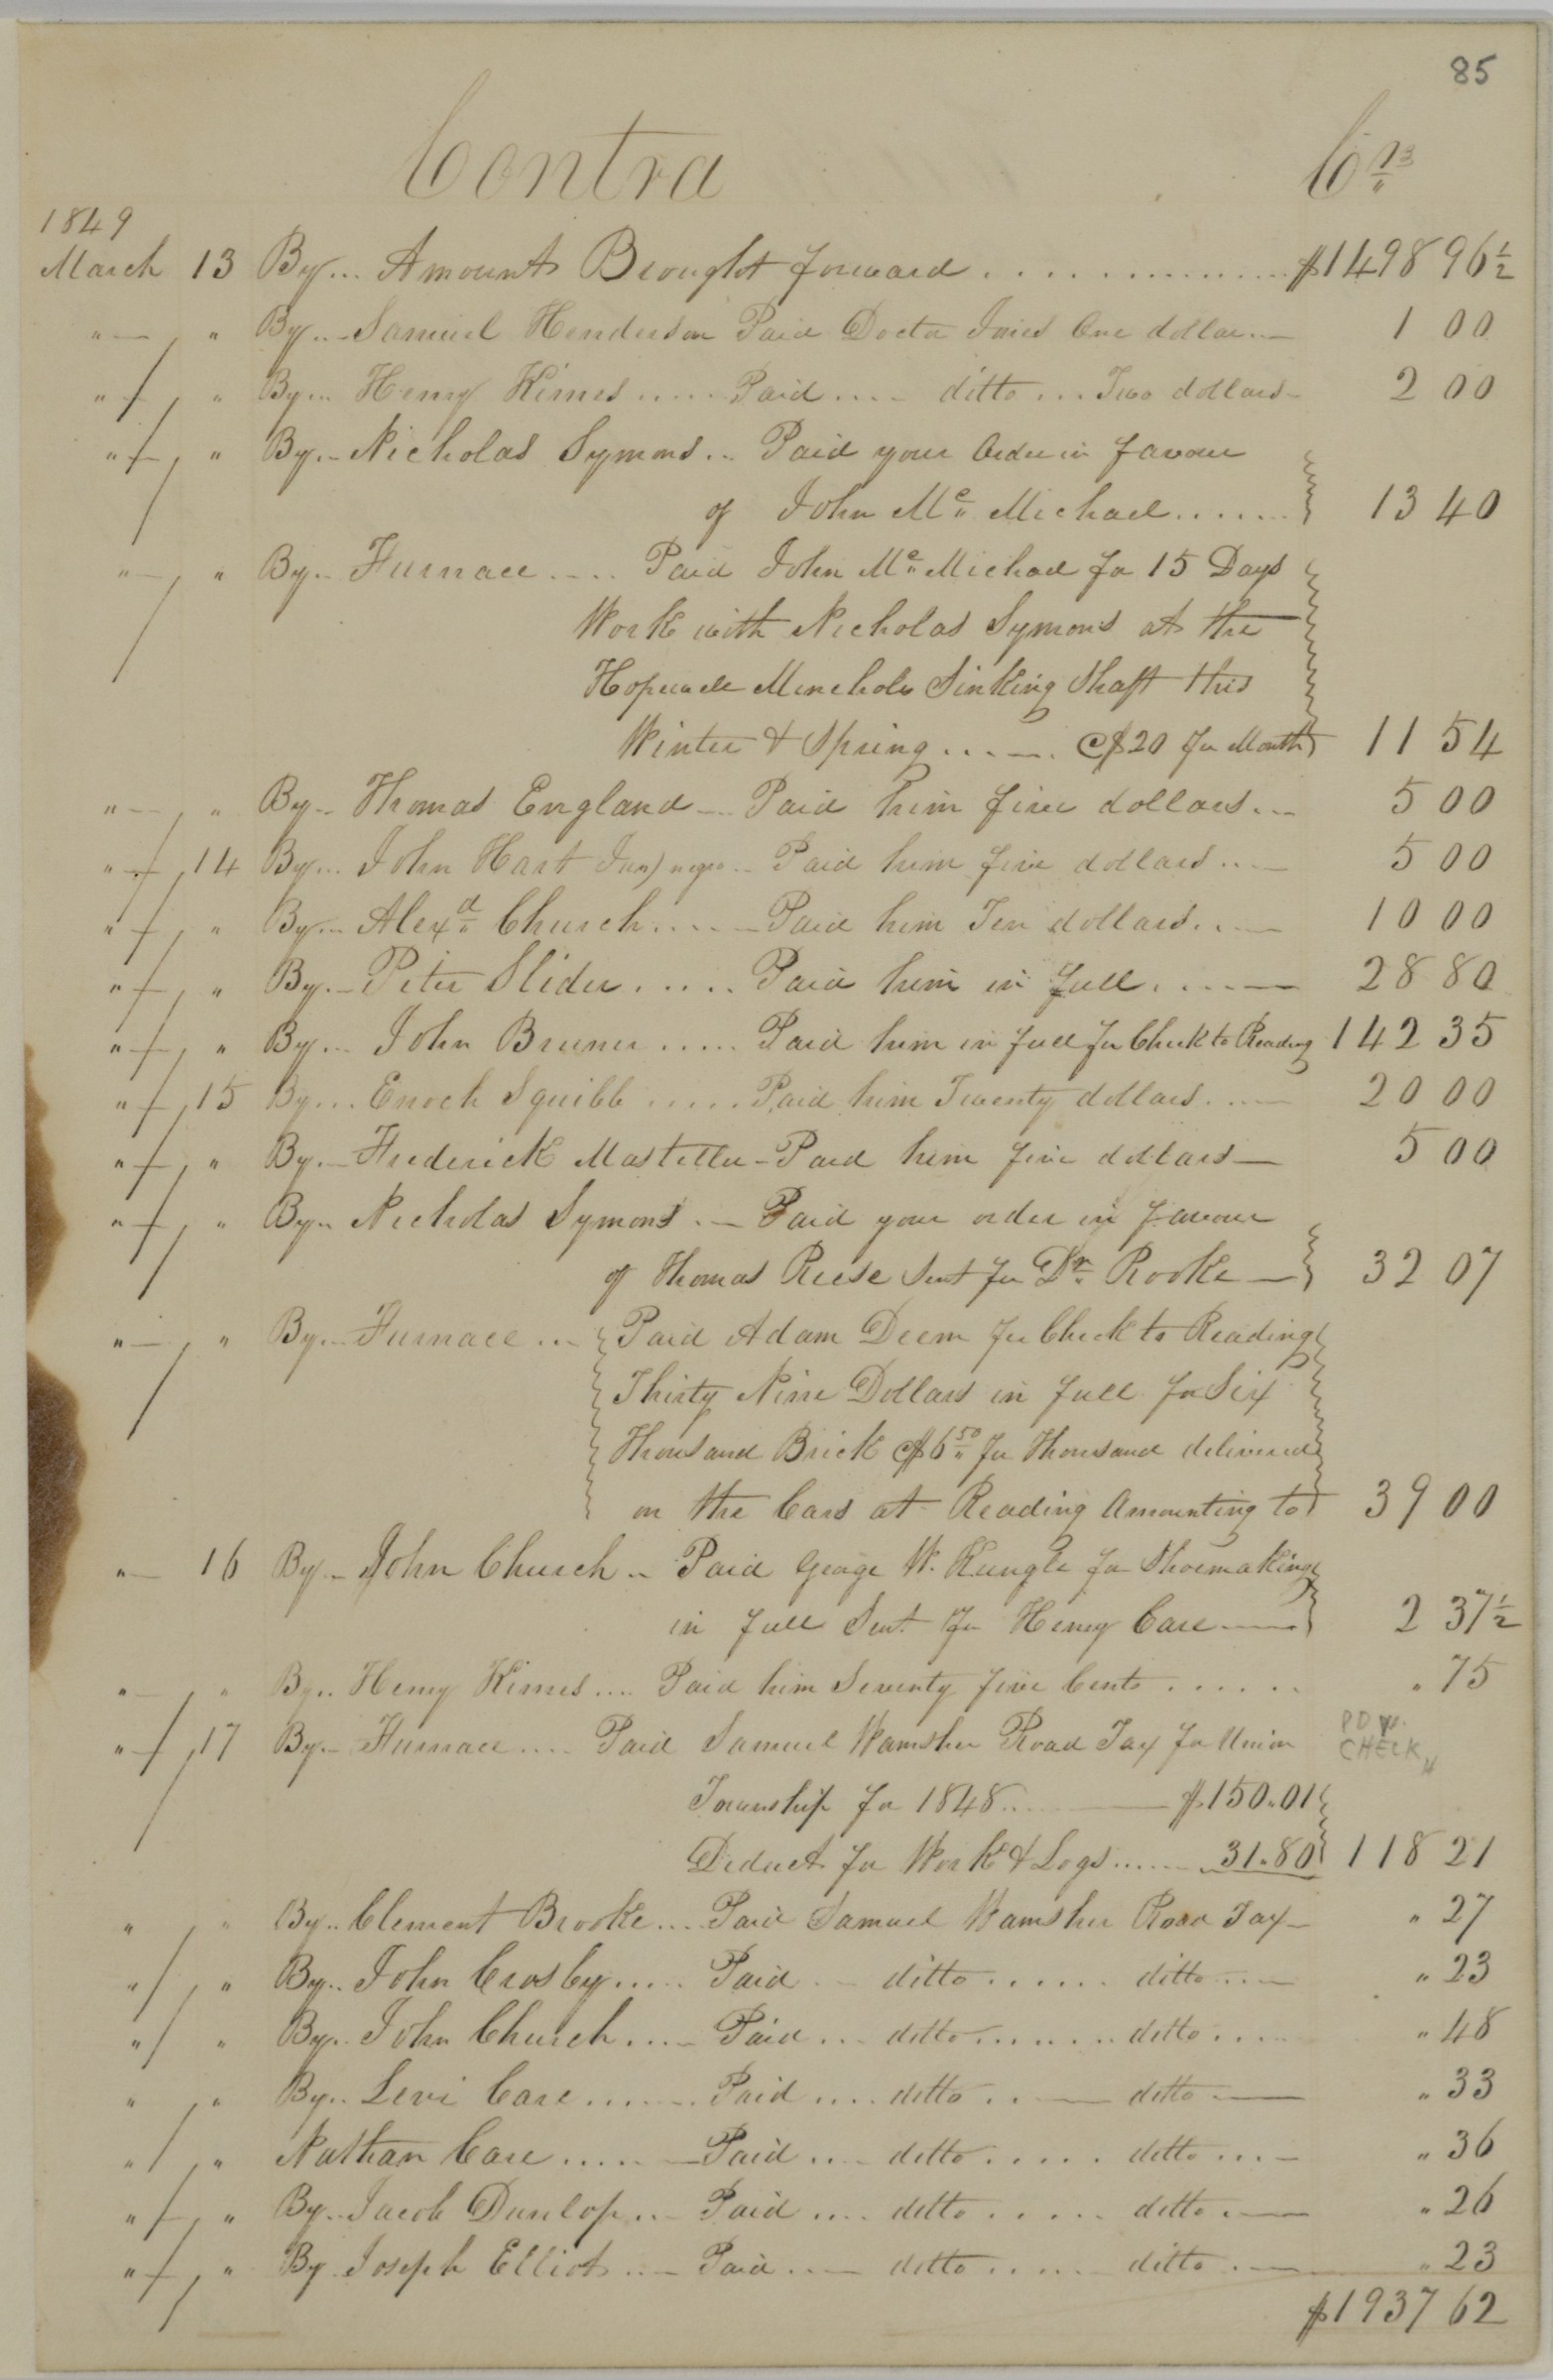 85
Contra Crs
1849
March 13 By... Amount Brought forward . . . . . . . . . . . . . . $1498 96½
" — , " By...Samuel Henderson Paid Doctor Jones One dollar...— 1 00
" — , " By... Henry Kimes ..... Paid .... ditto ... Two dollars— 2 00
" — , " By..—Nicholas Symons... Paid your Order in favour
of John Mc Michael....... 13 40
" — , " By.. Furnace..... Paid John Mc Michael for 15 Days
Work with Nicholas Symons at the
Hopewell Minehole Sinking Shaft this
Winter & Spring....—. @$20 per Month 11 54
" — , " By.. Thomas England... Paid him five dollars... 5 00
" — , 14 By... John Hart Jun) negro... Paid him five dollars...— 5 00
" — , " By... Alexd Church.....—Paid him Ten dollars...— 10 00
" — , " By..—Peter Slider ..... Paid him in full.....— 28 80
" — , " By... John Bruner ..... Paid him in full per Check to Reading 142 35
" — , 15 By... Enoch Squibb ..... Paid him Twenty dollars....— 20 00
" — , " By..—Frederick Mosteller—Paid him five dollars— 5 00
" — , " By.. Nicholas Symons..— Paid your order in favour
of Thomas Reese Sent per Dr. Rooke— 32 07
" — , " By...Furnace... Paid Adam Deem per Check to Reading
Thirty Nine Dollars in full for Six
Thousand Brick @$6 50 per Thousand delivered
on the Cars at Reading Amounting to 39 00
" — 16 By..—John Church... Paid George W. Kungle for Shoemaking
in full Sent per Henry Care—— 2 37½
" — , " By.. Henry Kimes.... Paid him Seventy five Cents ...... " 75
" — , 17 By..—Furnace.... Paid Samuel Wamsher Road Tax for Union
PD W.
CHECK "
Township for 1848...——— $150.01
Deduct for Work & Logs......— 31.80 118 21
" , " By.. Clement Brooke....Paid Samuel Wamsher Road Tax— " 27
" , " By.. John Crosby..... Paid... ditto...... ditto....— " 23
" , " By.. John Church....—Paid... ditto....... ditto..... " 48
" , " By.. Levi Care.......Paid.... ditto...— ditto.— " 33
" , " Nathan Care......—Paid.... ditto..... ditto...— " 36
" — , " By..Jacob Dunlop...—Paid.... ditto..... ditto.— " 26
" — , " By..Joseph Elliot...—Paid....— ditto.....— ditto.— " 23
$1937 62